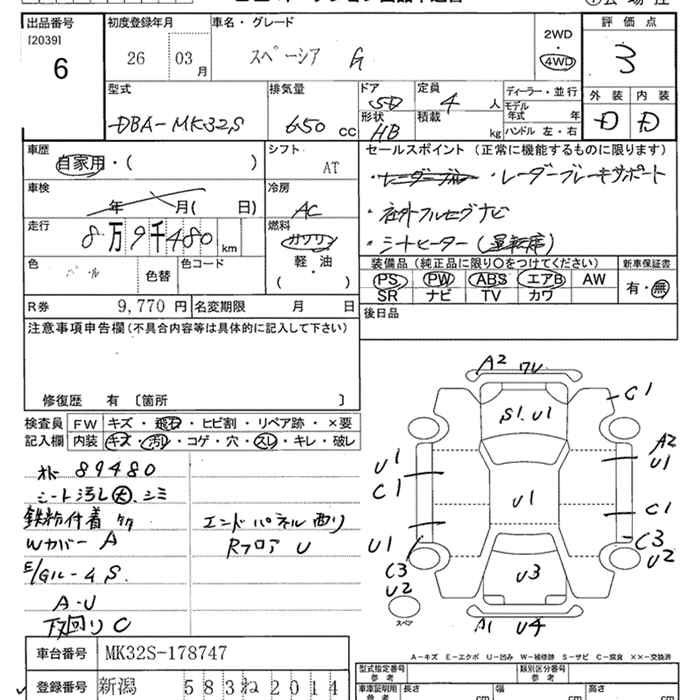 出品番号
[2039]
6
初度登録年月
26 03 月
車名・グレード
スペーシア G
2WD
・
4WD
評価点
3
型式
DBA-MK32S
排気量
650 cc
ドア
5D
形状
HB
定員
4 人
積載
kg
ディーラー・並行
モデル年式 年
ハンドル 左・右
外装 内装
D D
車歴
自家用・( )
シフト
AT
セールスポイント (正常に機能するものに限ります)
・レーダーブレーキサポート
・社外フルセグナビ
・シートヒーター(運転席)
車検
年 月( 日)
冷房
AC
走行
8万9千480 km
燃料
ガソリン
軽・油
( )
色
パール
色替
色コード
装備品 (純正品に限り○をつけてください)
PS PW ABS エアB AW
SR ナビ TV カワ
新車保証書
有・無
R券 9,770 円
名変期限 月 日
後日品
注意事項申告欄(不具合内容等は具体的に記入して下さい)
修復歴 有 〔箇所 〕
検査員記入欄
FW キズ・飛石・ヒビ割・リペア跡・×要
内装 キズ・汚れ・コゲ・穴・スレ・キレ・破レ
オドー 89480
シート汚レ大、シミ
鉄粉付着
Wカバー A
E/Gルーム S.
A・U
下廻り C
エンドパネル
Rフロア U
A2 ワレ
S1.U1
C1
U1
C1
A2
U1
U1
C1
U1
C3
U2
C3
U2
U3
スペア
A1 U4
A-キズ E-エクボ U-凹み W-補修跡 S-サビ C-腐食 ××-交換済
車台番号 MK32S-178747
登録番号 新潟 583 ね 2014
型式指定番号
参考
類別区分番号
参考
車庫証明用
参考
長さ cm
幅 cm
高さ cm